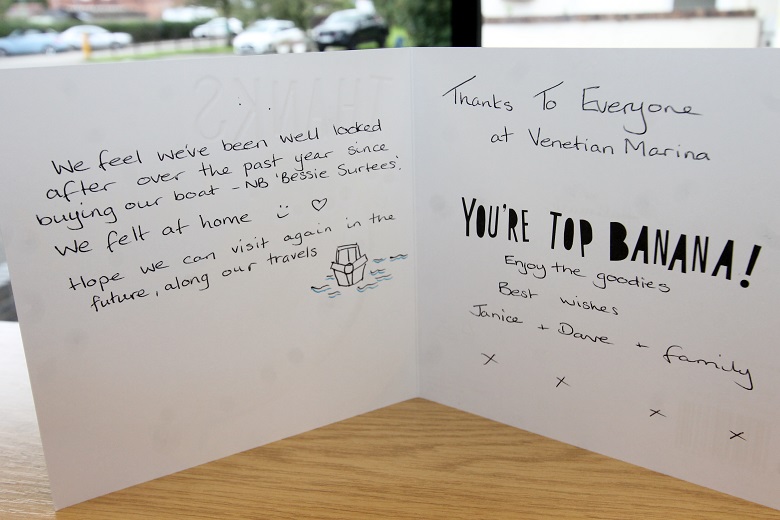 We feel we've been well looked
after over the past year since
buying our boat - NB 'Bessie Surtees'.
We felt at home
Hope we can visit again in the
future, along our travels
Thanks To Everyone
at Venetian Marina
YOU'RE TOP BANANA!
Enjoy the goodies
Best wishes
Janice + Dave + family
x x x x
THANKS